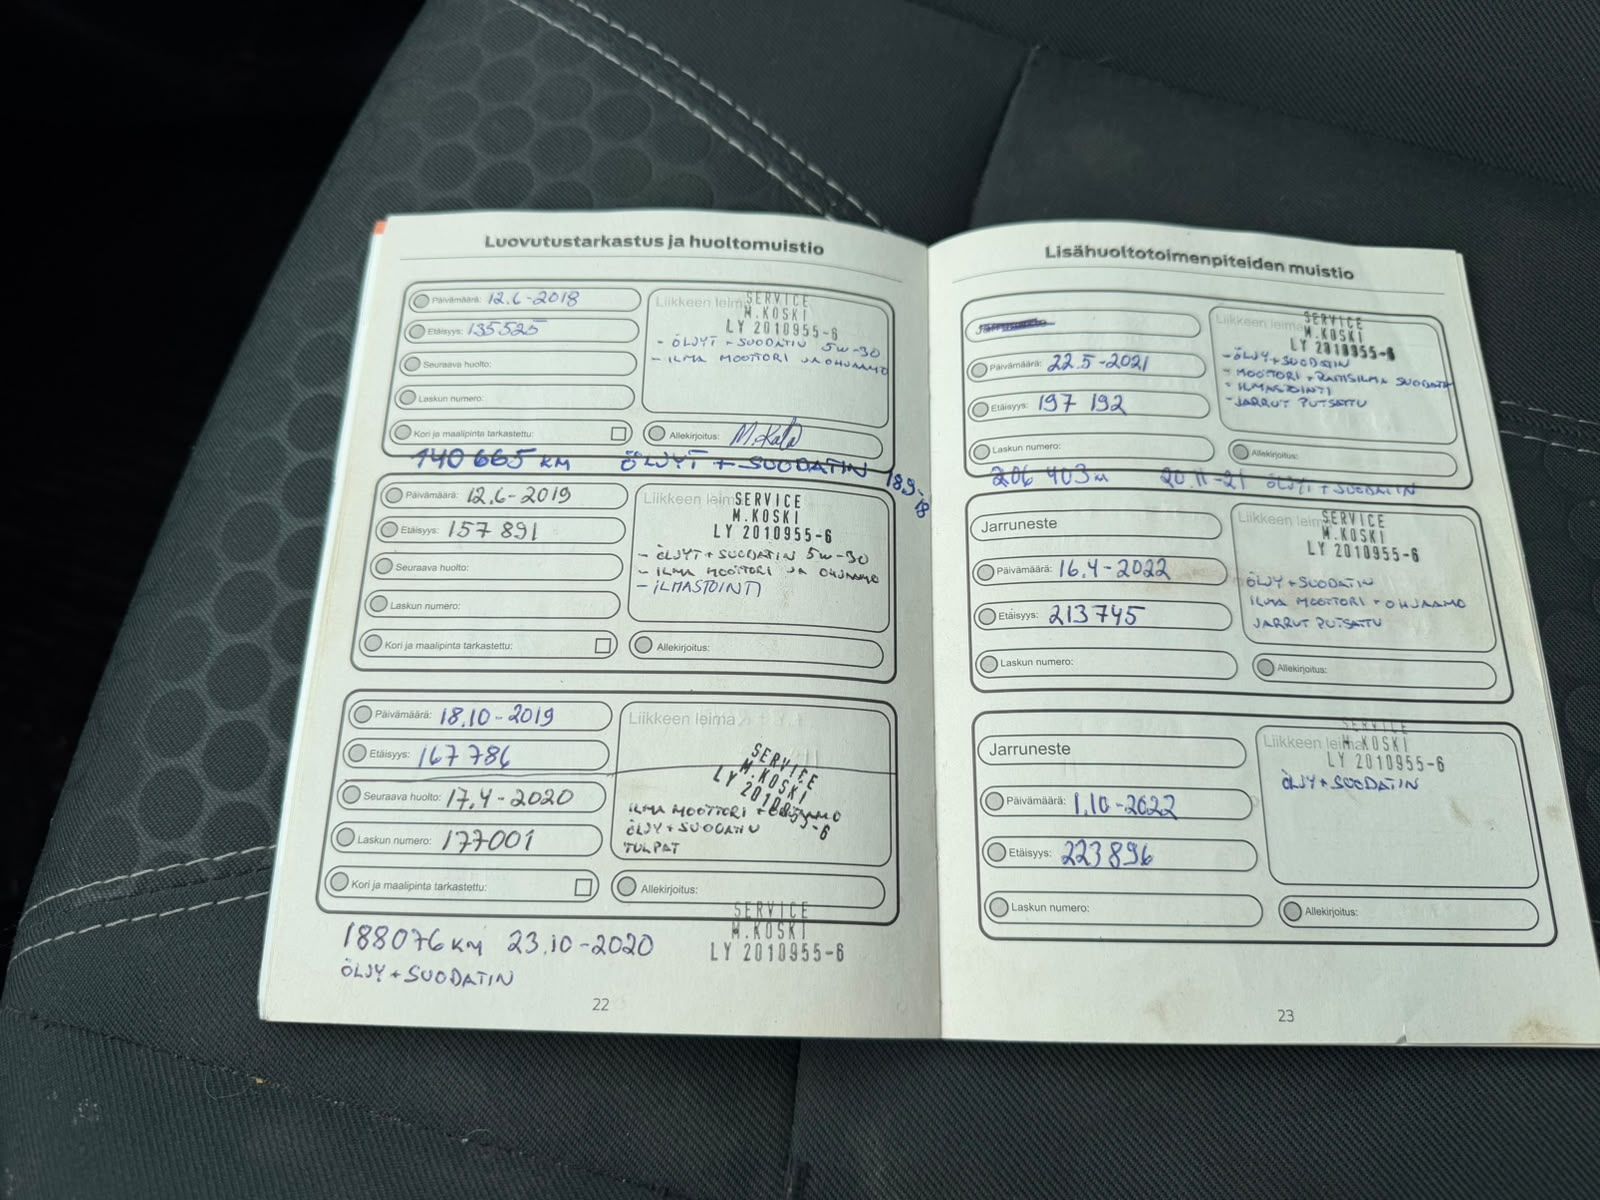 Luovutustarkastus ja huoltomuistio
Päivämäärä: 12.6-2018
Etäisyys: 135525
Seuraava huolto:
Laskun numero:
Kori ja maalipinta tarkastettu:
Liikkeen leima
SERVICE
M.KOSKI
LY 2010955-6
- ÖLJYT + SUODATIN 5W-30
- ILMA MOOTTORI JA OHJAAMO
Allekirjoitus:
140 665 KM ÖLJYT + SUODATIN 18.9-18
Päivämäärä: 12.6-2019
Etäisyys: 157 891
Seuraava huolto:
Laskun numero:
Kori ja maalipinta tarkastettu:
Liikkeen leima
SERVICE
M.KOSKI
LY 2010955-6
- ÖLJYT + SUODATIN 5W-30
- ILMA MOOTTORI JA OHJAAMO
- ILMASTOINTI
Allekirjoitus:
Päivämäärä: 18.10-2019
Etäisyys: 167 786
Seuraava huolto: 17.4-2020
Laskun numero: 177001
Kori ja maalipinta tarkastettu:
Liikkeen leima
SERVICE
M.KOSKI
LY 2010955-6
ILMA MOOTTORI + OHJAAMO
ÖLJY + SUODATIN
TULPAT
Allekirjoitus:
188076 KM 23.10-2020
ÖLJY + SUODATIN
SERVICE
M.KOSKI
LY 2010955-6
22
Lisähuoltotoimenpiteiden muistio
Päivämäärä: 22.5-2021
Etäisyys: 197 192
Laskun numero:
Liikkeen leima
SERVICE
M.KOSKI
LY 2010955-6
- ÖLJY + SUODATIN
- MOOTTORI + RAITISILMA SUODATIN
- ILMASTOINTI
- JARRUT PUTSATTU
Allekirjoitus:
206 403 20.11-21 ÖLJYT + SUODATIN
Jarruneste
Päivämäärä: 16.4-2022
Etäisyys: 213745
Laskun numero:
Liikkeen leima
SERVICE
M.KOSKI
LY 2010955-6
ÖLJY + SUODATIN
ILMA MOOTTORI + OHJAAMO
JARRUT PUTSATTU
Allekirjoitus:
Jarruneste
Päivämäärä: 1.10-2022
Etäisyys: 223896
Laskun numero:
Liikkeen leima
SERVICE
M.KOSKI
LY 2010955-6
ÖLJY + SUODATIN
Allekirjoitus:
23